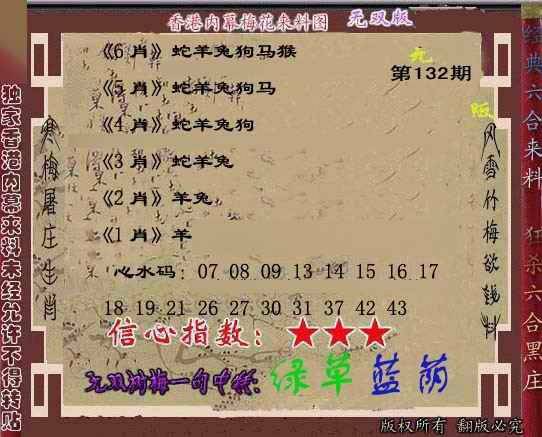 香港内幕梅花来料图 无双版
第132期
《6 肖》蛇羊兔狗马猴
《5 肖》蛇羊兔狗马
《4 肖》蛇羊兔狗
《3 肖》蛇羊兔
《2 肖》羊兔
《1 肖》羊
心水码: 07 08 09 13 14 15 16 17
18 19 21 26 27 30 31 37 42 43
信心指数: ★★★
无双湘梅一句中特: 绿草蓝荫
版权所有 翻版必究
独家香港内幕来料未经允许不得转贴
寒梅屠庄生肖
风雪竹梅欲钱料
无
版
经典六合来料
狂杀六合黑庄